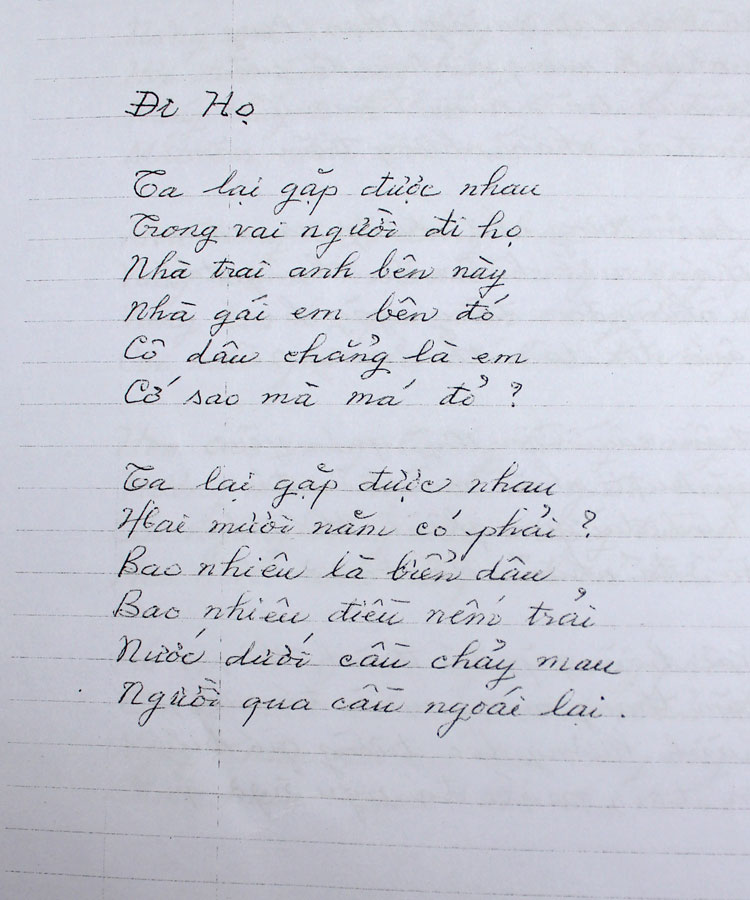 Đi Họ
Ta lại gặp được nhau
Trong vai người đi họ
Nhà trai anh bên này
Nhà gái em bên đó
Cô dâu chẳng là em
Cớ sao mà má đỏ ?
Ta lại gặp được nhau
Hai mươi năm có phải ?
Bao nhiêu là biển dâu
Bao nhiêu điều nếm trải
Nước dưới cầu chảy mau
Người qua cầu ngoái lại .